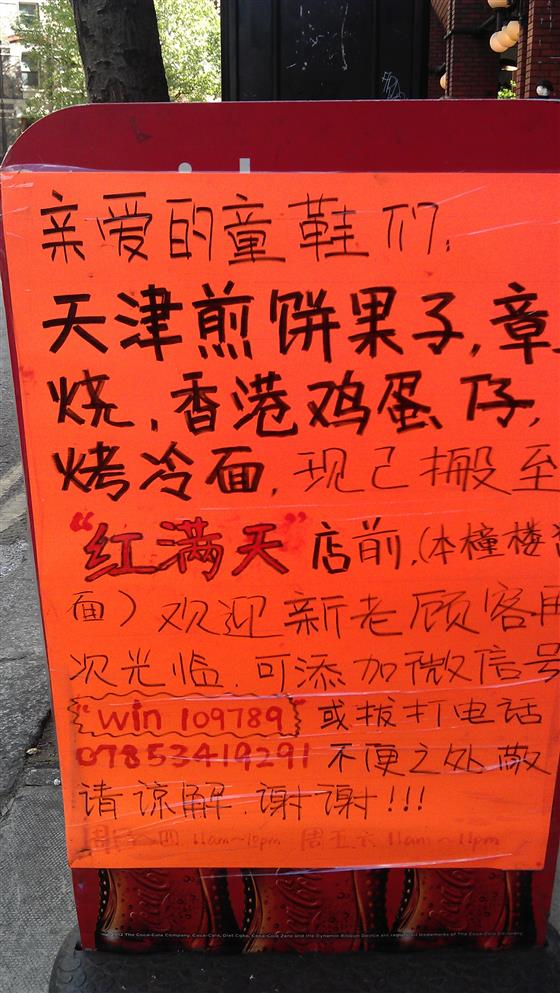 亲爱的童鞋们.
天津煎饼果子,章
烧,香港鸡蛋仔,
烤冷面,现已搬至
“红满天”店前.(本橦楼
面)欢迎新老顾客
次光临.可添加微信号
"win 109789"或拔打电话
07853419291不便之处敬
请谅解.谢谢!!!
周 四 11am~10pm 周五六 11am~11pm
2012 The Coca-Cola Company. Coca-Cola, Diet Coke, Coca-Cola Zero and the Dynamic Ribbon Device are registered trademarks of The Coca-Cola Company.